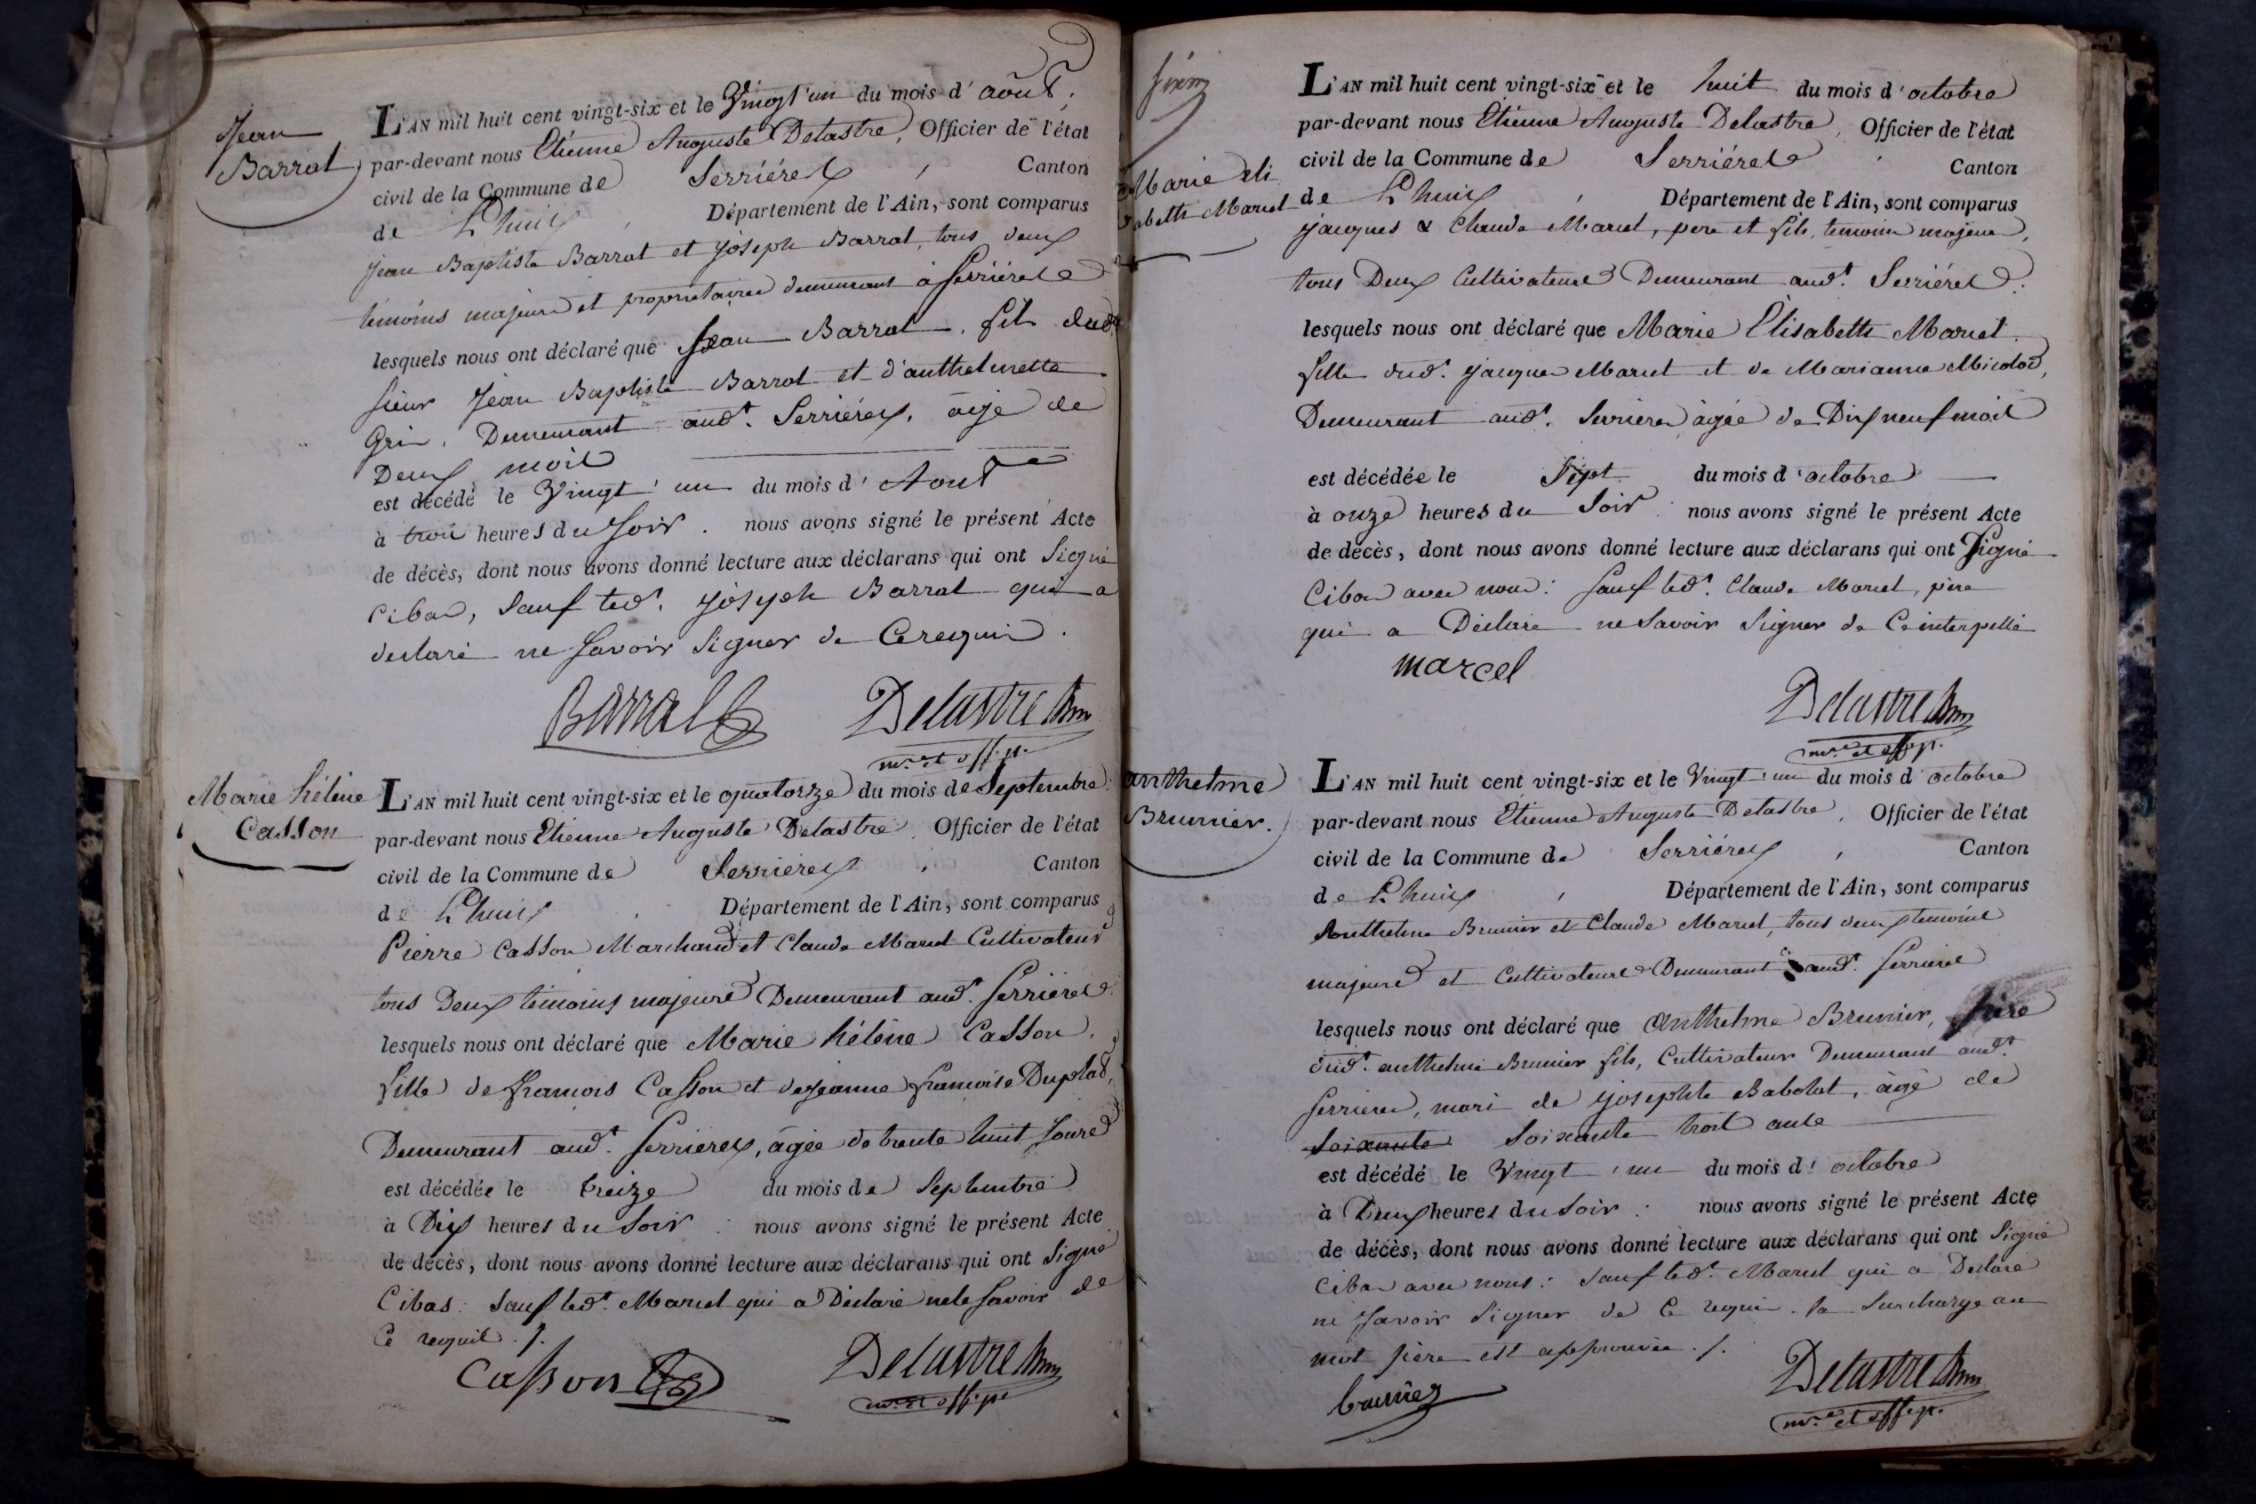 Jean
Barral
L'AN mil huit cent vingt-six et le Vingt'un du mois d'août,
par-devant nous Etienne Auguste Delastre, Officier de l'état
civil de la Commune de Serriéres, Canton
de L'huis, Département de l'Ain, sont comparus
Jean Baptiste Barral et joseph Barral, tous deux
témoins majeurs et propriétaires demeurant à Serriéres
lesquels nous ont déclaré que Jean Barral, fils dudt
sieur Jean Baptiste Barral et d'anthelmette
Grin, Demeurant audt. Serriéres, âgé de
Deux mois
est décédé le Vingt'un du mois d'Aout
à trois heures du soir. nous avons signé le présent Acte
de décès, dont nous avons donné lecture aux déclarans qui ont Signé
cibas, sauf ledt. joseph Barral qui a
declaré ne savoir signer de ce requis.
Barral
Delastre
mre et off. p.
Marie hélène
Casson
L'AN mil huit cent vingt-six et le quatorze du mois de Septembre
par-devant nous Etienne Auguste Delastre, Officier de l'état
civil de la Commune de Serrieres, Canton
de L'huis, Département de l'Ain, sont comparus
Pierre Casson Marchand et Claude Marcel Cultivateur
tous Deux témoins majeurs Demeurant audt. Serriéres
lesquels nous ont déclaré que Marie hélène Casson,
fille de françois Casson et de jeanne françoise Duplas,
Demeurant audt. Serrieres, âgée de trente huit jours
est décédée le treize du mois de Septembre
à Dix heures du soir : nous avons signé le présent Acte
de décès, dont nous avons donné lecture aux déclarans qui ont signé
Cibas : sauf ledt. Marcel qui a Déclaré ne le savoir de
ce requis ./.
Casson
Delastre
mre et off. p.
Marie éli
sabeth Marcel
L'AN mil huit cent vingt-six et le huit du mois d'octobre
par-devant nous Etienne Auguste Delastre, Officier de l'état
civil de la Commune de Serriéres, Canton
de L'huis, Département de l'Ain, sont comparus
jacques & Claude Marcel, pere et fils, temoins majeurs,
tous Deux Cultivateurs Demeurant audt. Serriéres.
lesquels nous ont déclaré que Marie Élisabeth Marcel.
fille dudt. jacques Marcel et de Marianne Micolod,
Demeurant audt. Serrieres âgée de Dix neuf mois
est décédée le Sept du mois d'octobre
à onze heures du Soir : nous avons signé le présent Acte
de décès, dont nous avons donné lecture aux déclarans qui ont Signé
Cibas avec nous : sauf ledt. Claude Marcel, père
qui a Déclaré ne savoir signer de Ce interpellé
marcel
Delastre
mre et off. p.
anthelme
Brunier.
L'AN mil huit cent vingt-six et le Vingt'un du mois d'octobre
par-devant nous Etienne Auguste Delastre, Officier de l'état
civil de la Commune de Serriéres, Canton
de L'huis, Département de l'Ain, sont comparus
Anthelme Brunier et Claude Marcel, tous deux temoins
majeurs et Cultivateurs Demeurant audt. Serrieres
lesquels nous ont déclaré que Anthelme Brunier, père
dudt. anthelme Brunier fils, Cultivateur Demeurant audt.
Serrieres, mari de josephte Babolat, âgé de
soixante soixante trois ans
est décédé le Vingt'un du mois d'octobre
à Deux heures du soir : nous avons signé le présent Acte
de décès, dont nous avons donné lecture aux déclarans qui ont signé
cibas avec nous : sauf ledt. Marcel qui a Declaré
ne savoir signer de Ce requis. la surcharge au
mot père est approuvée ./.
brunier
Delastre
mre et off. p.